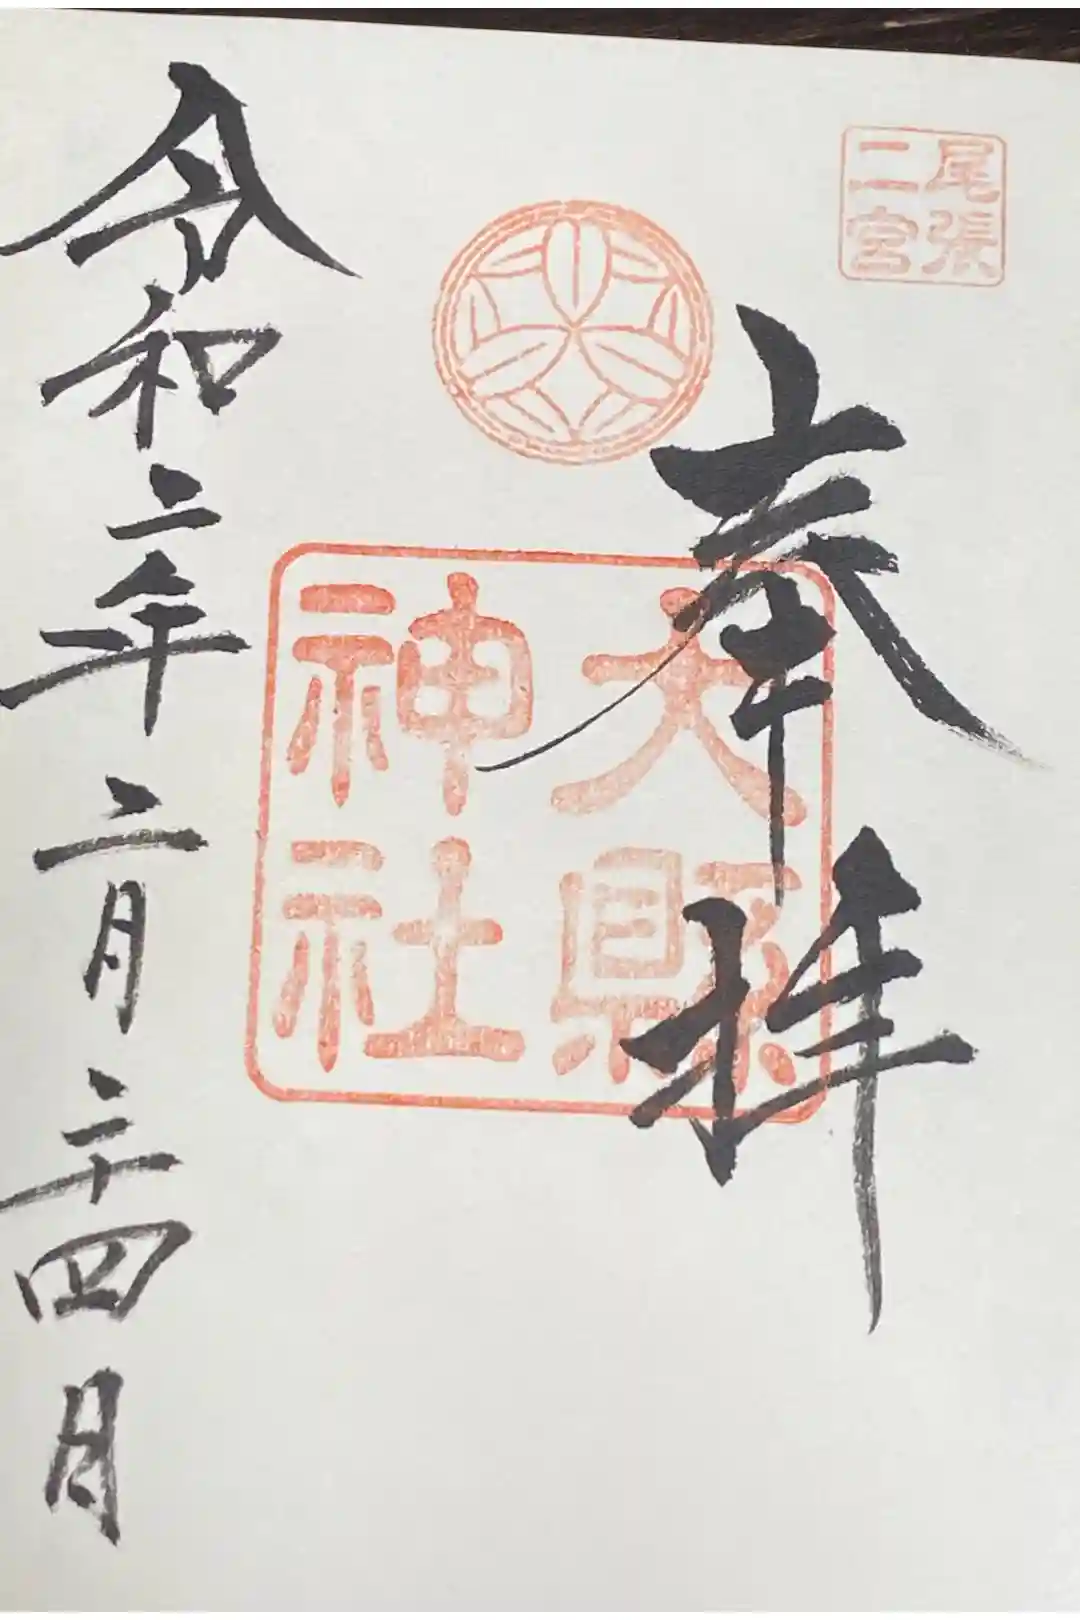 尾張
二宮
奉拝
大縣
神社
令和二年二月二十四日